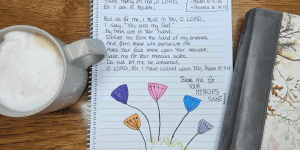 Have mercy on me, O LORD,
for I am in trouble.
But as for me, I trust in You, O LORD;
I say, "You are my God."
My times are in Your hand;
Deliver me from the hand of my enemies,
And from those who persecute me.
Make Your face shine upon Your servant;
Save me for Your mercies' sake.
Do not let me be ashamed,
O LORD, for I have called upon You; Psalm 31:
Save me for
YOUR
MERCIES
SAKE!